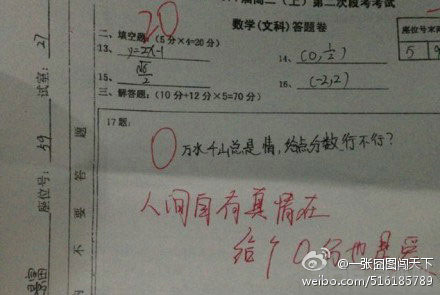 20
届高二（上）第二次段考考试
数学(文科)答题卷
座位号末
5
二、填空题：(5分×4=20分)
13、y=2x-1
14、(0,1/2)
15、√6/2
16、(-2,2)
三、解答题：(10分+12分×5=70分)
17题：
0
万水千山总是情，给点分数行不行？
人间自有真情在
给个0分也是爱
试室：27
座位号：59
不要答题
@一张囧图闯天下
weibo.com/516185789